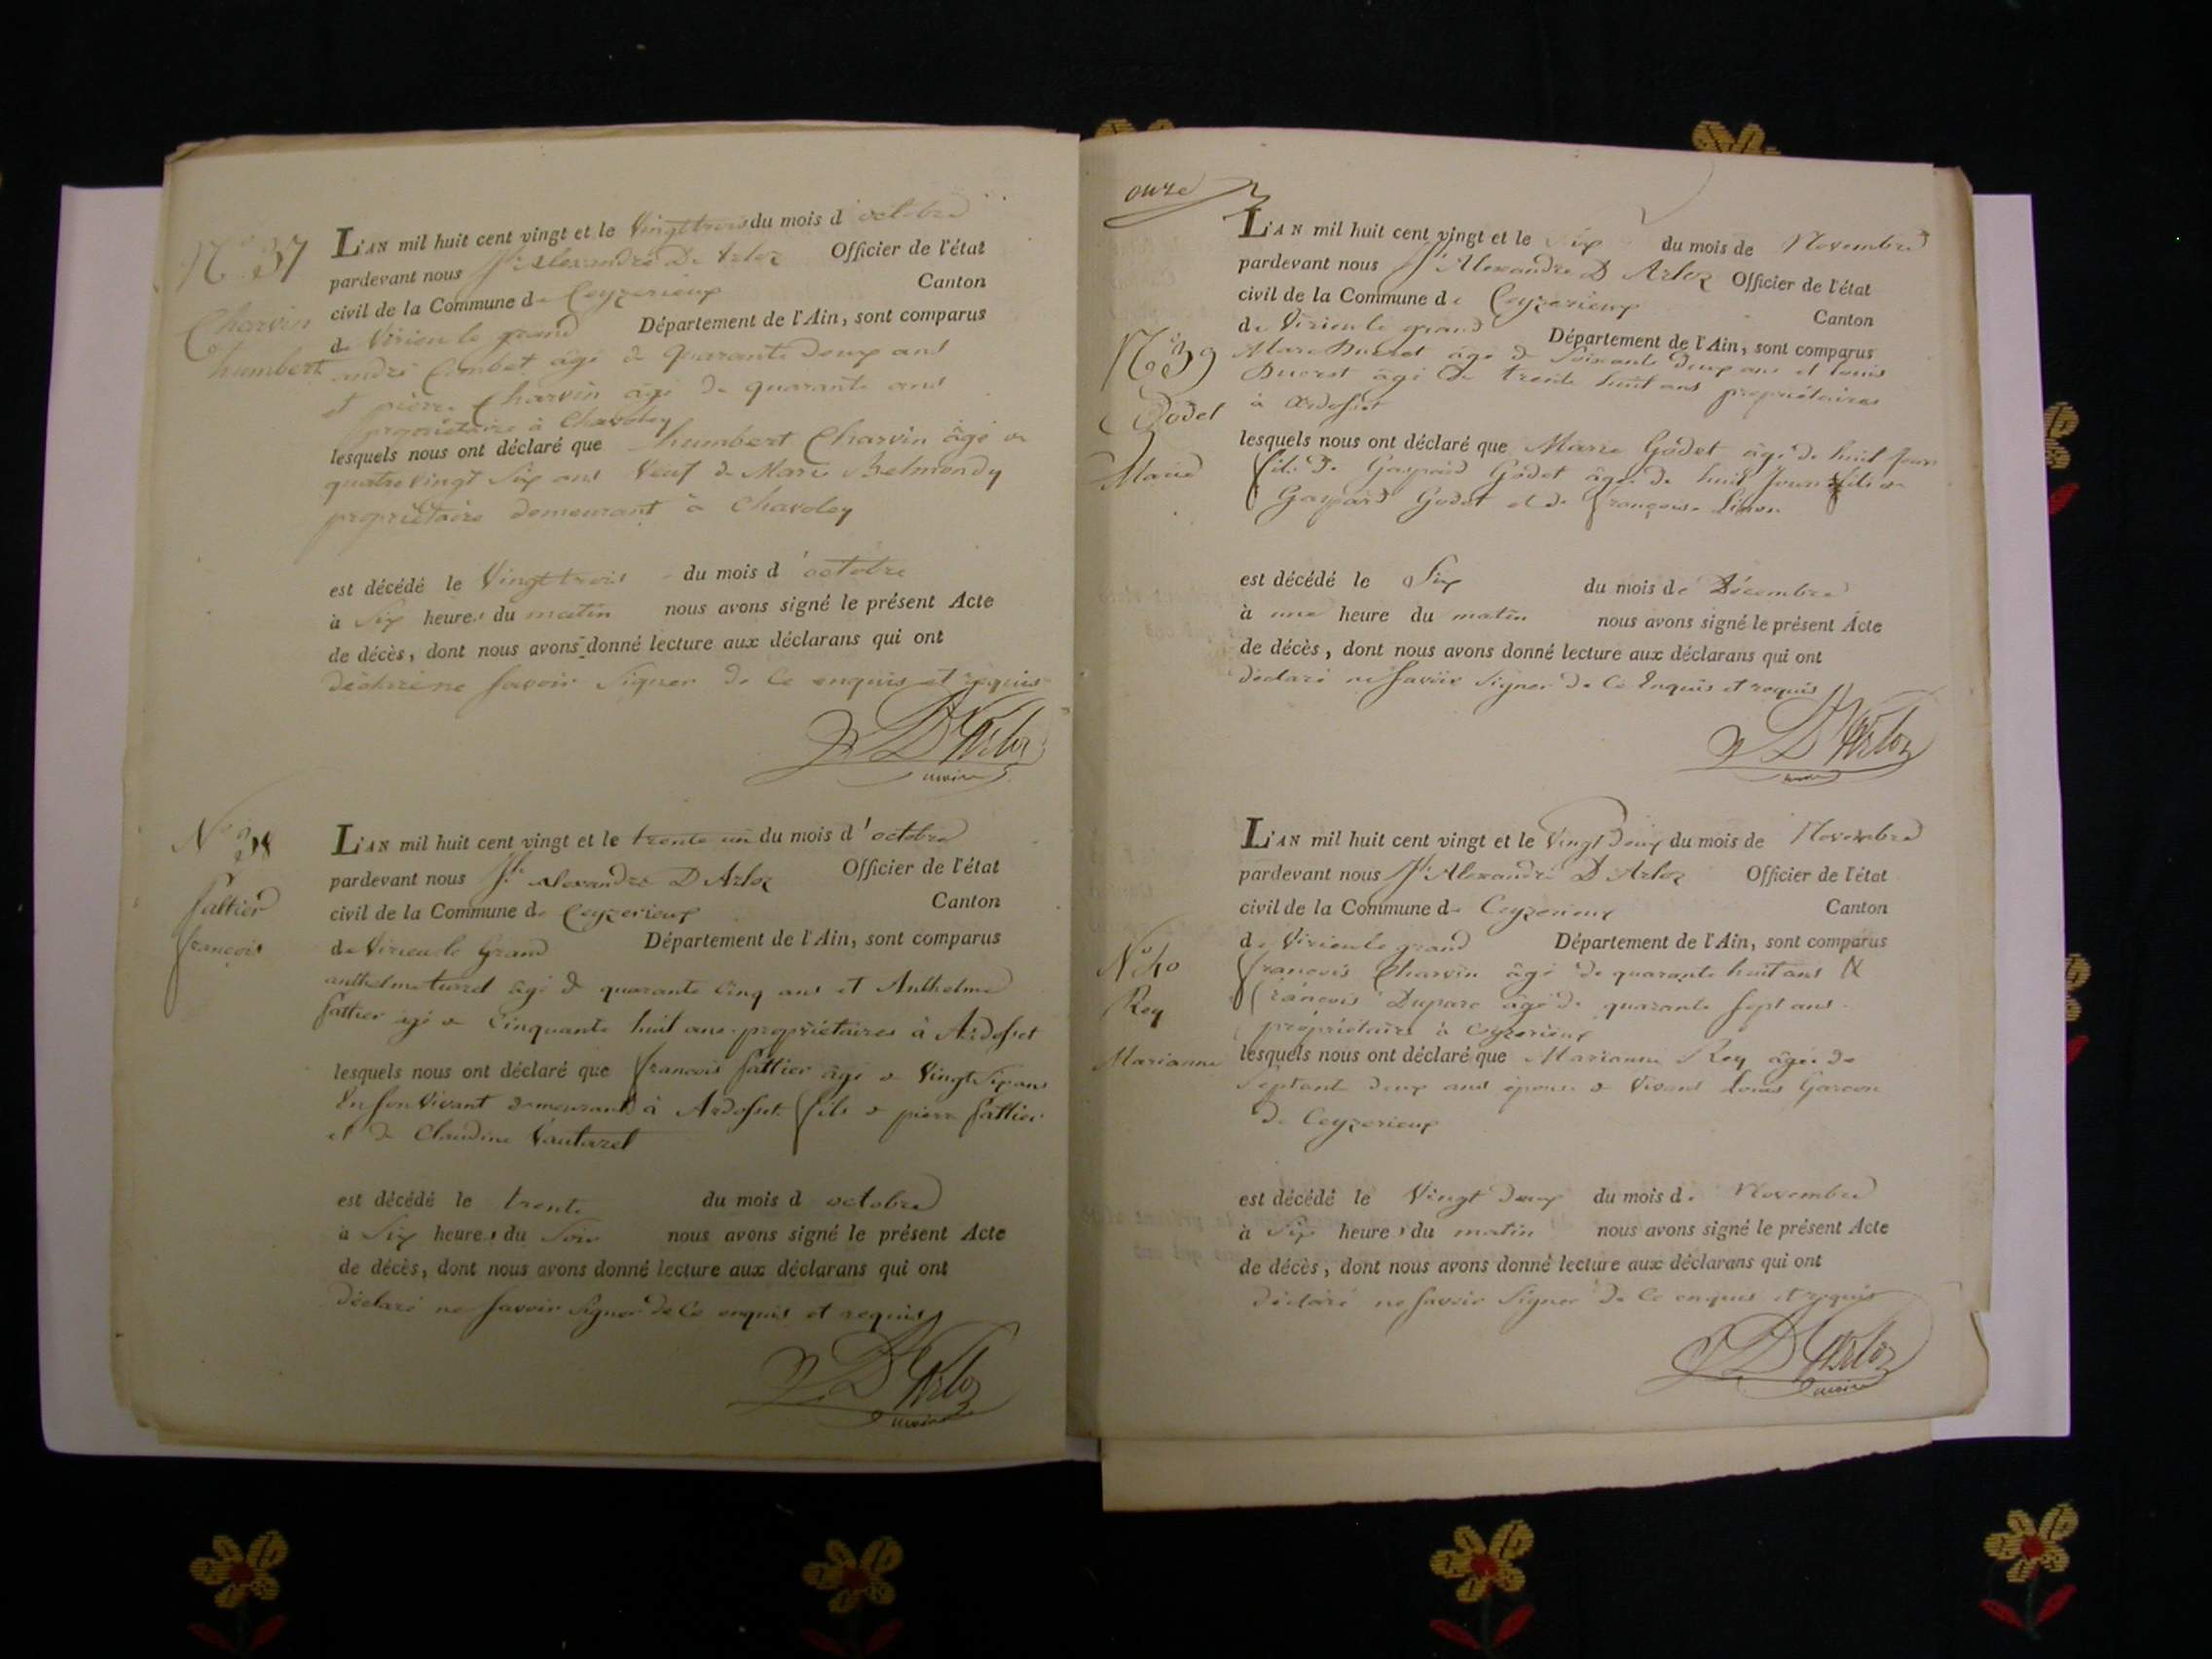 N° 37
Charvin
humbert
L'AN mil huit cent vingt et le Vingt trois du mois d'octobre
pardevant nous Jh Alexandre D Arloz Officier de l'état
civil de la Commune de Ceyzerieux Canton
de Virieu le grand Département de l'Ain, sont comparus
andré Combet âgé de quarante deux ans
et pierre Charvin âgé de quarante ans
propriétaires à Chavoley
lesquels nous ont déclaré que humbert Charvin âgé de
quatre vingt Six ans Veuf de Marie Belmondy
propriétaire demeurant à Chavoley
est décédé le Vingt trois du mois d'octobre
à Six heures du matin nous avons signé le présent Acte
de décès, dont nous avons donné lecture aux déclarans qui ont
déclaré ne Savoir Signer de Ce enquis et requis
D'Arloz
maire
N° 38
fattier
françois
L'AN mil huit cent vingt et le trente un du mois d'octobre
pardevant nous Jh Alexandre D Arloz Officier de l'état
civil de la Commune de Ceyzerieux Canton
de Virieu le Grand Département de l'Ain, sont comparus
anthelme âgé de quarante Cinq ans et Anthelme
fattier âgé de Cinquante huit ans propriétaires à Ardosset
lesquels nous ont déclaré que francois fattier âgé de Vingt Six ans
En Son Vivant demeurant à Ardosset fils de pierre fattier
et de Claudine Vautaret
est décédé le trente du mois d octobre
à Six heures du Soir nous avons signé le présent Acte
de décès, dont nous avons donné lecture aux déclarans qui ont
déclaré ne Savoir Signer de Ce enquis et requis
D'Arloz
maire
onze
N° 39
Godet
Marie
L'AN mil huit cent vingt et le Six du mois de Novembre
pardevant nous Jh Alexandre D Arloz Officier de l'état
civil de la Commune de Ceyzerieux Canton
de Virieu le grand Département de l'Ain, sont comparus
Marc Ducrot âgé de Soixante deux ans et louis
Ducrot âgé de trente huit ans propriétaires
à Ardosset
lesquels nous ont déclaré que Marie Godet âgé de huit Jours
fils de Gaspard Godet âgé de huit Jours fils de
Gaspard Godet et de françoise Simon
est décédé le Six du mois de Décembre
à une heure du matin nous avons signé le présent Acte
de décès, dont nous avons donné lecture aux déclarans qui ont
déclaré ne Savoir Signer de Ce Enquis et requis
D'Arloz
maire
N° 40
Rey
Marianne
L'AN mil huit cent vingt et le Vingt Deux du mois de Novembre
pardevant nous Jh Alexandre D Arloz Officier de l'état
civil de la Commune de Ceyzerieux Canton
de Virieu le grand Département de l'Ain, sont comparus
francois Charvin âgé de quarante huit ans &
francois Duparc âgé de quarante Sept ans
propriétaires à Ceyzerieux
lesquels nous ont déclaré que Marianne Rey âgée de
Septante deux ans épouse de Vivant louis Garcon
de Ceyzerieux
est décédé le Vingt Deux du mois de Novembre
à Six heures du matin nous avons signé le présent Acte
de décès, dont nous avons donné lecture aux déclarans qui ont
déclaré ne Savoir Signer de Ce enquis et requis
D'Arloz
maire